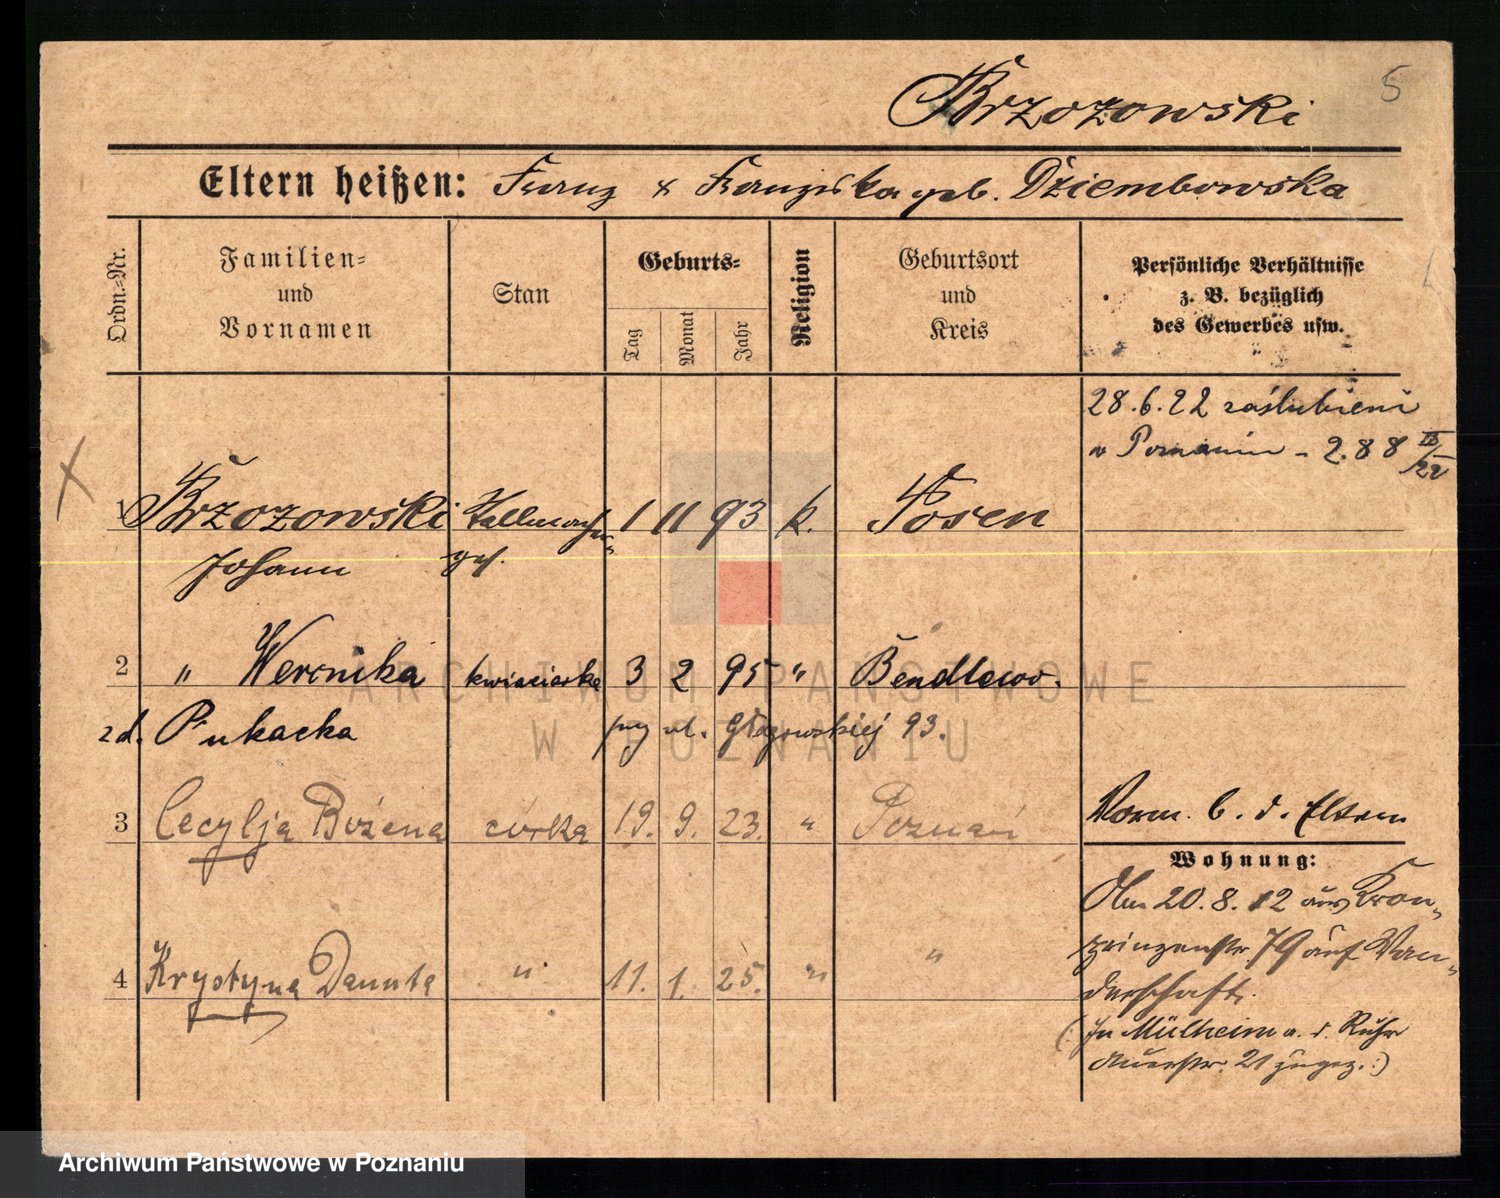 5
Brzozowski
Eltern heißen: Franz & Franziska geb. Dziembowska
Ordn.-Nr.
Familien-
und
Vornamen
Stan
Geburts-
Tag
Monat
Jahr
Religion
Geburtsort
und
Kreis
Persönliche Verhältnisse
z. B. bezüglich
des Gewerbes usw.
28.6.22 zaślubieni
w Poznaniu - 288 III/22
1 Brzozowski 1 11 93 k. Posen
Johann
2 " Weronika kwiaciarka 3 2 95 " Bendlewo.
zd. Pukacka przy ul. Głogowskiej 93.
3 Cecylja Bożena córka 19. 9. 23. " Poznań
Vorm. b. d. Eltern
Wohnung:
4 Krystyna Danuta " 11. 1. 25. " "
Am 20.8.12 aus Kron-
prinzenstr. 79 auf Wan-
derschaft.
(: In Mülheim a. d. Ruhr
21 zugez. :)
ARCHIWUM PAŃSTWOWE
W POZNANIU
Archiwum Państwowe w Poznaniu